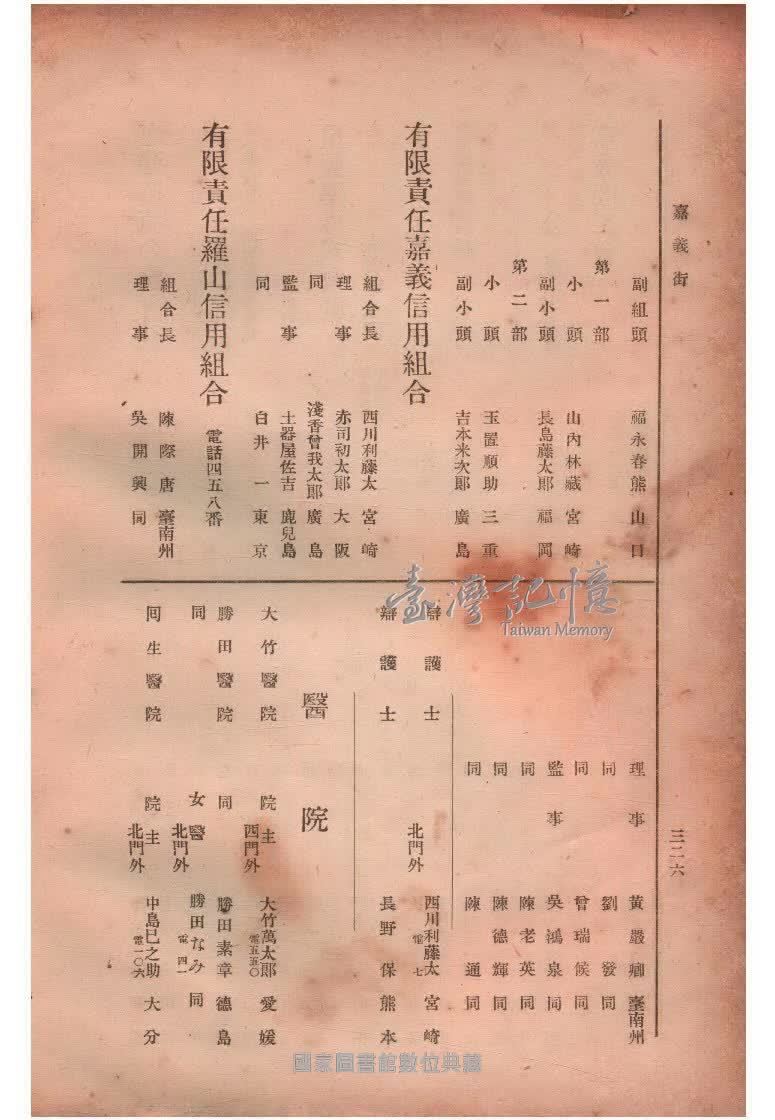 嘉義街
三二六
副組頭 福永春熊 山口
第一部
小頭 山內林藏 宮崎
副小頭 長島藤太郎 福岡
第二部
小頭 玉置順助 三重
副小頭 吉本米次郎 廣島
有限責任嘉義信用組合
組合長 西川利藤太 宮崎
理事 赤司初太郎 大阪
同 淺香曾我太郎 廣島
監事 土器屋佐吉 鹿兒島
同 白井一 東京
有限責任羅山信用組合 電話四五八番
組合長 陳際唐 臺南州
理事 吳開興 同
理事 黃嚴卿 臺南州
同 劉發 同
同 曾瑞候 同
監事 吳鴻泉 同
同 陳老英 同
同 陳德輝 同
同 陳通 同
辯護士 北門外 西川利藤太 電七 宮崎
辯護士 長野保 熊本
醫院
大竹醫院 院主 西門外 大竹萬太郎 電五五〇 愛媛
勝田醫院 同 勝田素章 德島
同 女醫 北門外 勝田なみ 電四一 同
回生醫院 院主 北門外 中島巳之助 電一〇六 大分
臺灣記憶
Taiwan Memory
國家圖書館數位典藏